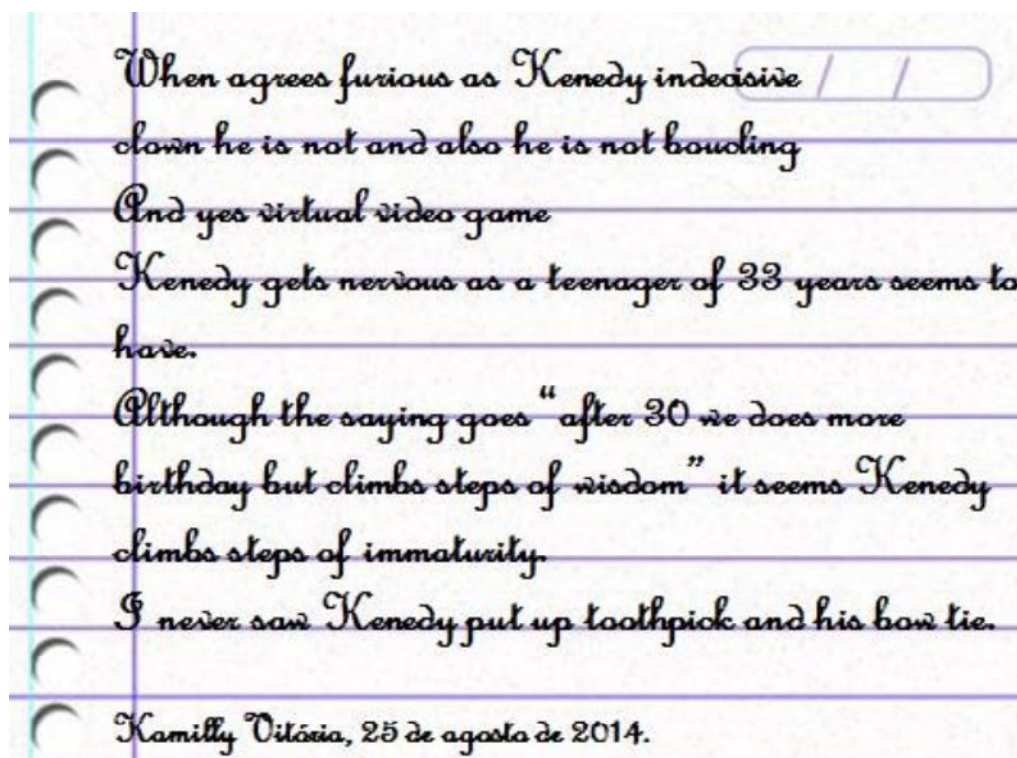 When agrees furious as Kenedy indecisive
clown he is not and also he is not bouding
And yes virtual video game
Kenedy gets nervous as a teenager of 33 years seems to
have.
Although the saying goes “after 30 we does more
birthday but climbs steps of wisdom” it seems Kenedy
climbs steps of immaturity.
I never saw Kenedy put up toothpick and his bow tie.
Kamilly Vitória, 25 de agosto de 2014.